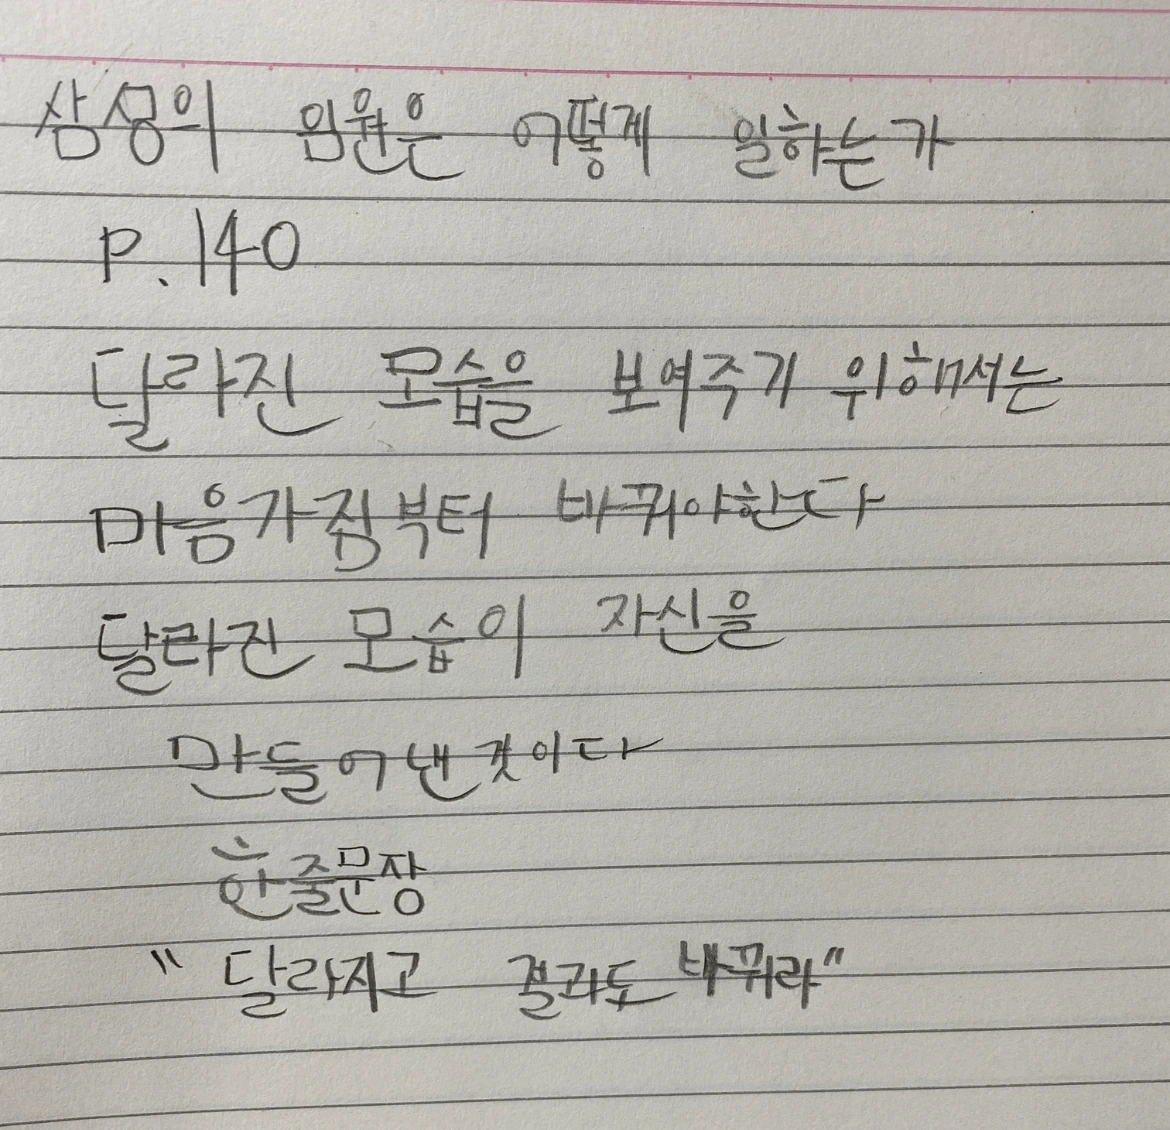 삼성의 임원은 어떻게 일하는가
P. 140
달라진 모습을 보여주기 위해서는
마음가짐부터 바뀌야한다
달라진 모습이 자신을
만들어낸것이다
한줄문장
"달라지고 결과도 바뀌라"